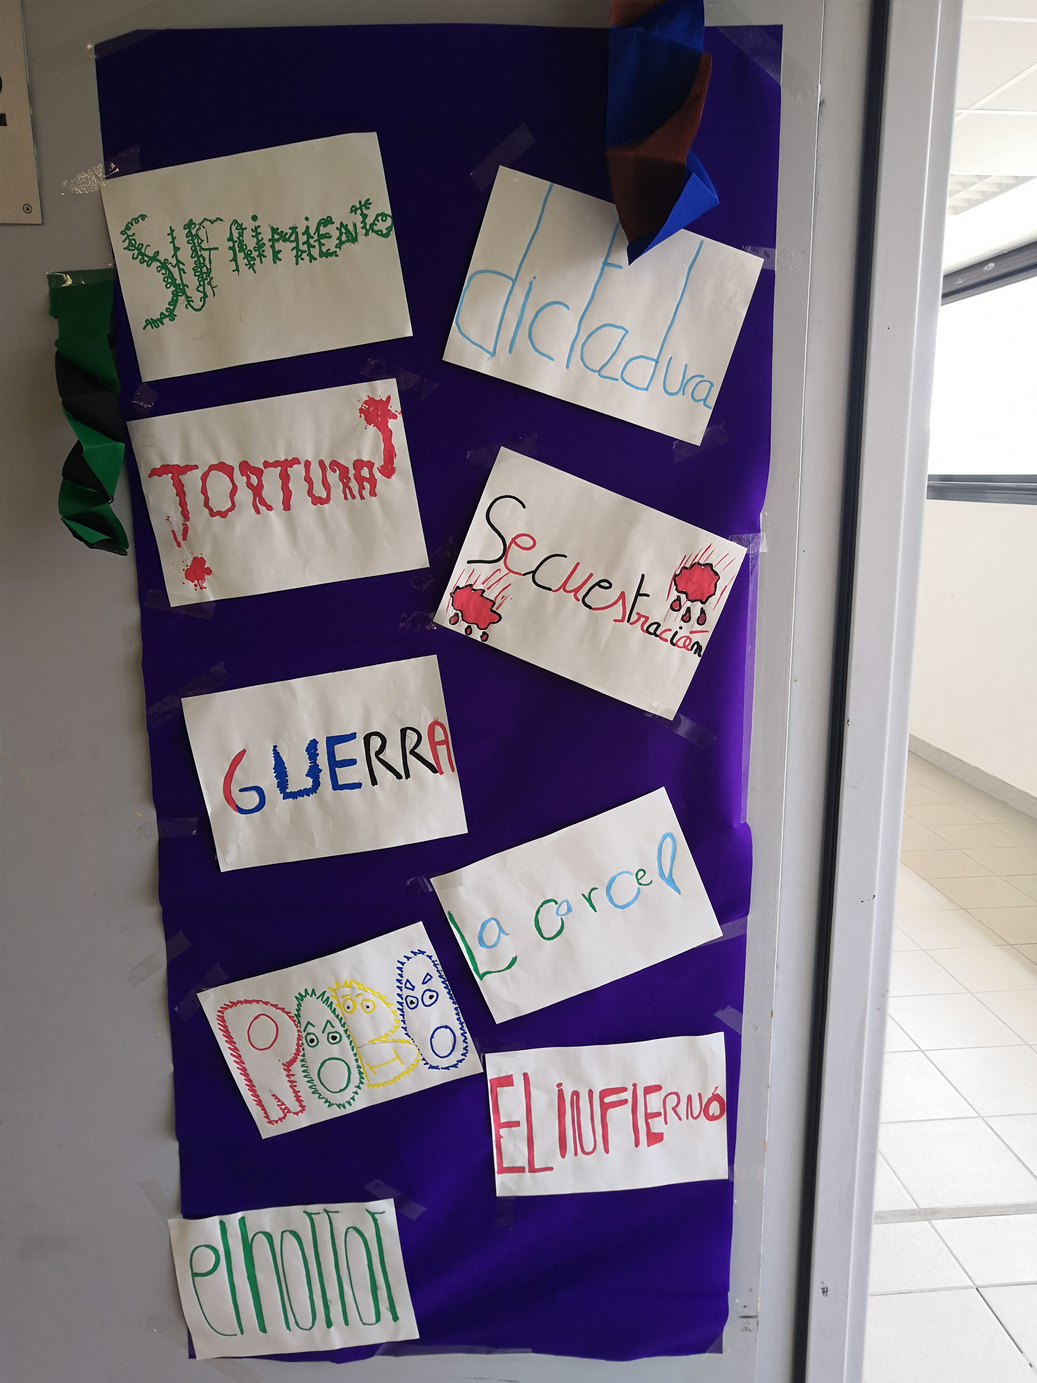 SUFRIMIENTO
dictadura
TORTURA
Secuestración
GUERRA
La carcel
ROBO
EL INFIERNÓ
el horror